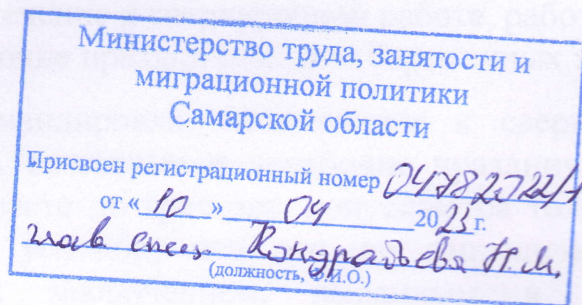 Министерство труда, занятости и
миграционной политики
Самарской области
Присвоен регистрационный номер 04782022/1
от « 10 » 04 2023 г.
глав спец Кондратьева Н.М.
(должность, Ф.И.О.)